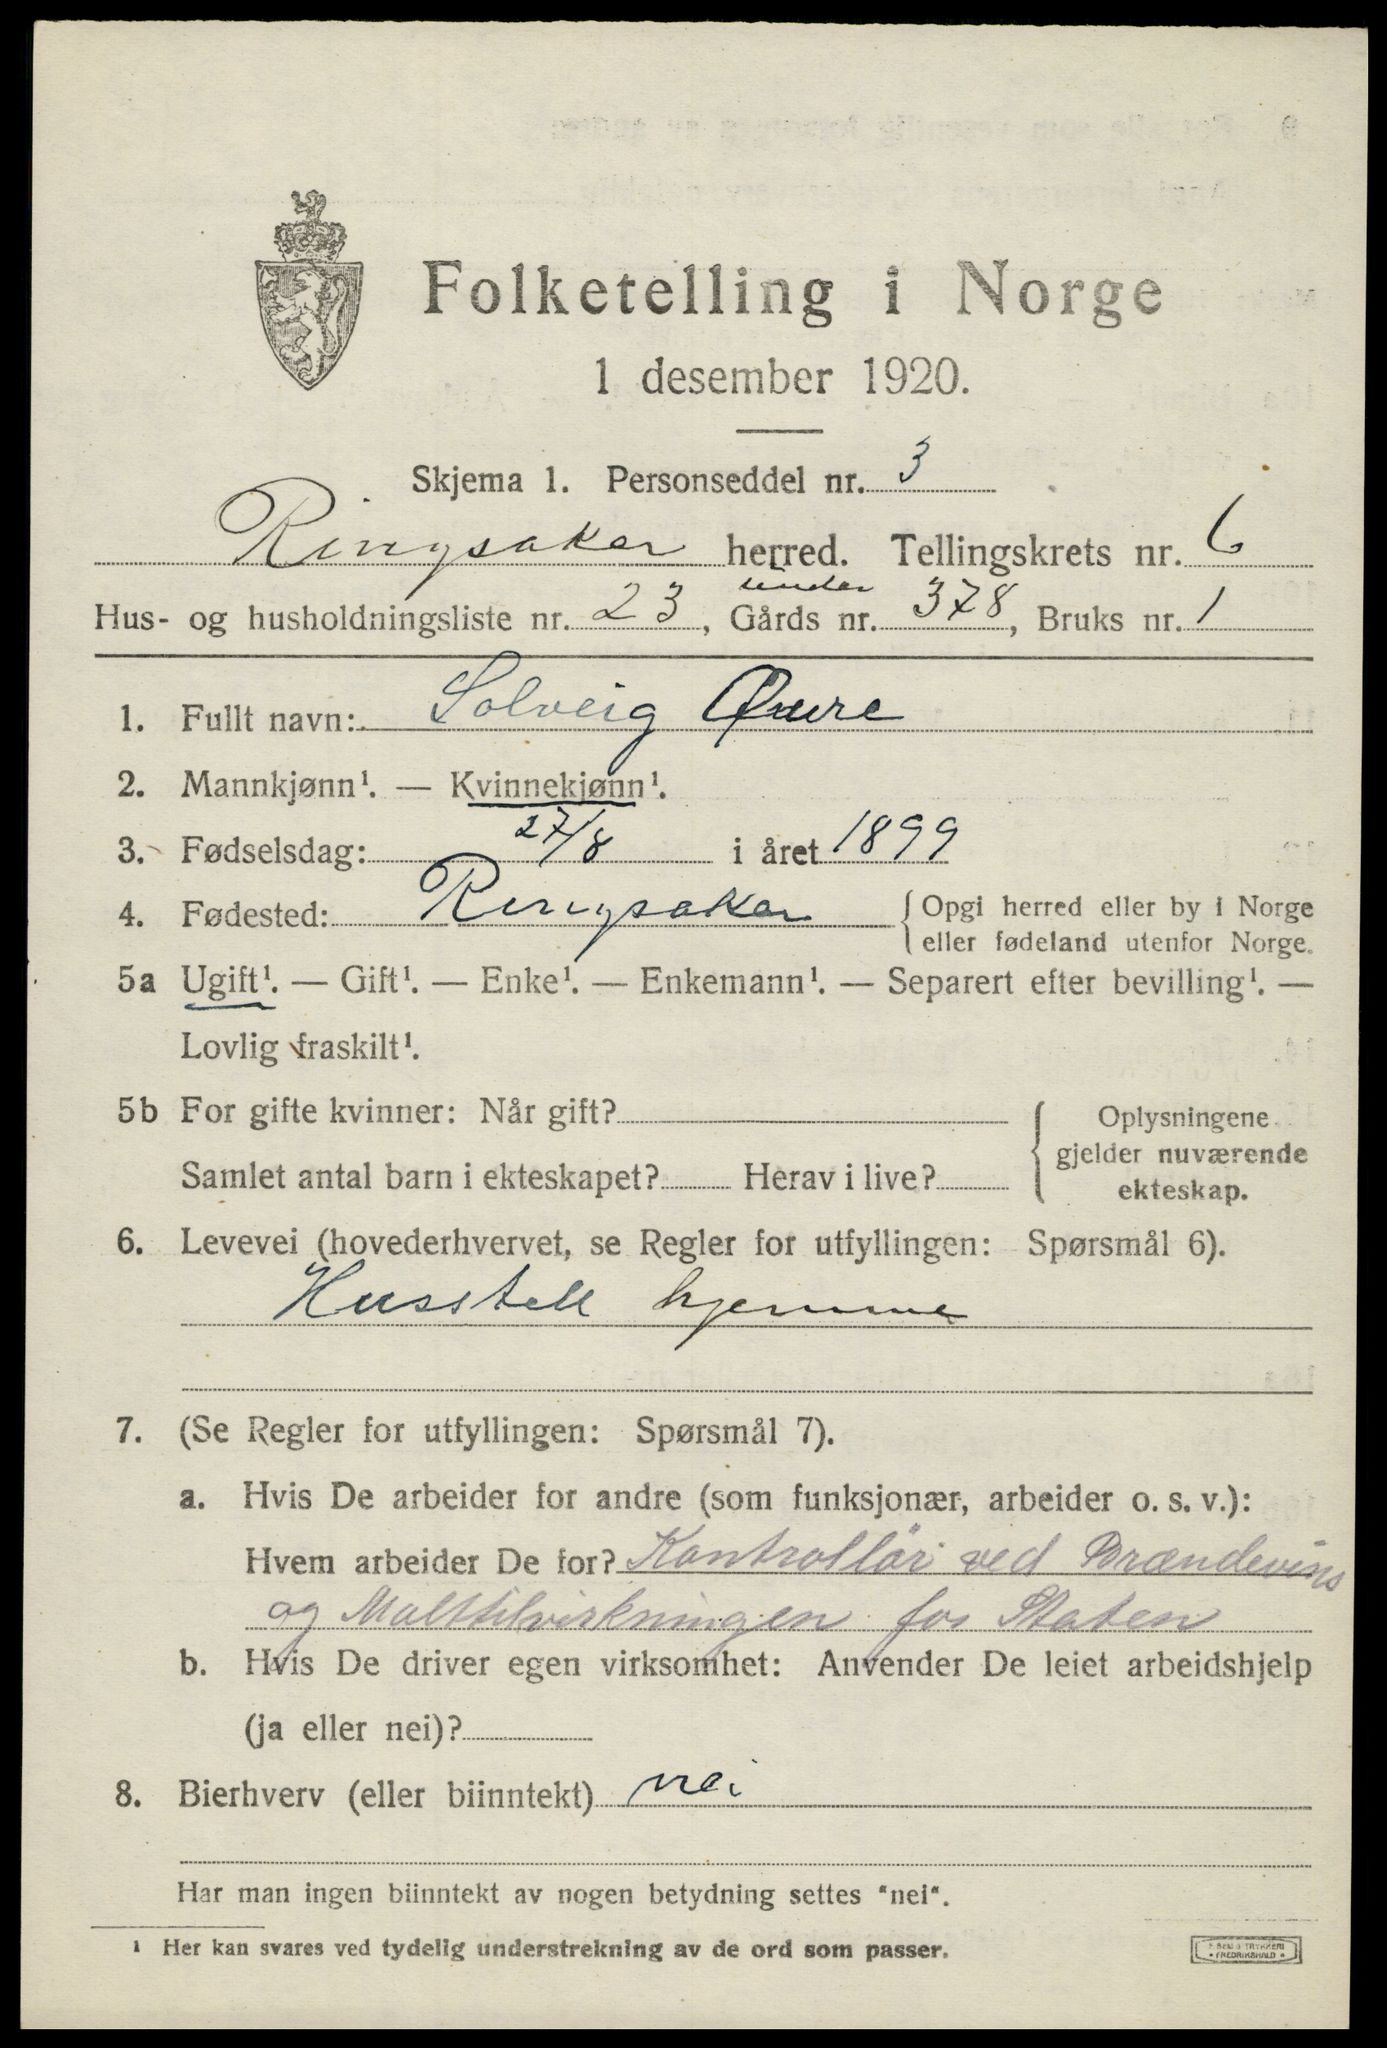 Folketelling i Norge
1 desember 1920.
Skjema 1. Personseddel nr. 3
Ringsaker herred. Tellingskrets nr. 6
under
Hus- og husholdningsliste nr. 23, Gårds nr. 378, Bruks nr. 1
1. Fullt navn: Solveig Øvere
2. Mannkjønn¹. — Kvinnekjønn¹.
3. Fødselsdag: 27/8 i året 1899
4. Fødested: Ringsaker {Opgi herred eller by i Norge
eller fødeland utenfor Norge.
5a Ugift¹. — Gift¹. — Enke¹. — Enkemann¹. — Separert efter bevilling¹. —
Lovlig fraskilt¹.
5b For gifte kvinner: Når gift?
Samlet antal barn i ekteskapet? Herav i live?
{ Oplysningene
gjelder nuværende
ekteskap.
6. Levevei (hovederhvervet, se Regler for utfyllingen: Spørsmål 6).
Husstell hjemme
7. (Se Regler for utfyllingen: Spørsmål 7).
a. Hvis De arbeider for andre (som funksjonær, arbeider o. s. v.):
Hvem arbeider De for? Kontrollör ved Brændevins
og Malttilvirkningen for Staten
b. Hvis De driver egen virksomhet: Anvender De leiet arbeidshjelp
(ja eller nei)?
8. Bierhverv (eller biinntekt) nei
Har man ingen biinntekt av nogen betydning settes "nei".
¹ Her kan svares ved tydelig understrekning av de ord som passer.
TRYKKERI
FREDRIKSHALD